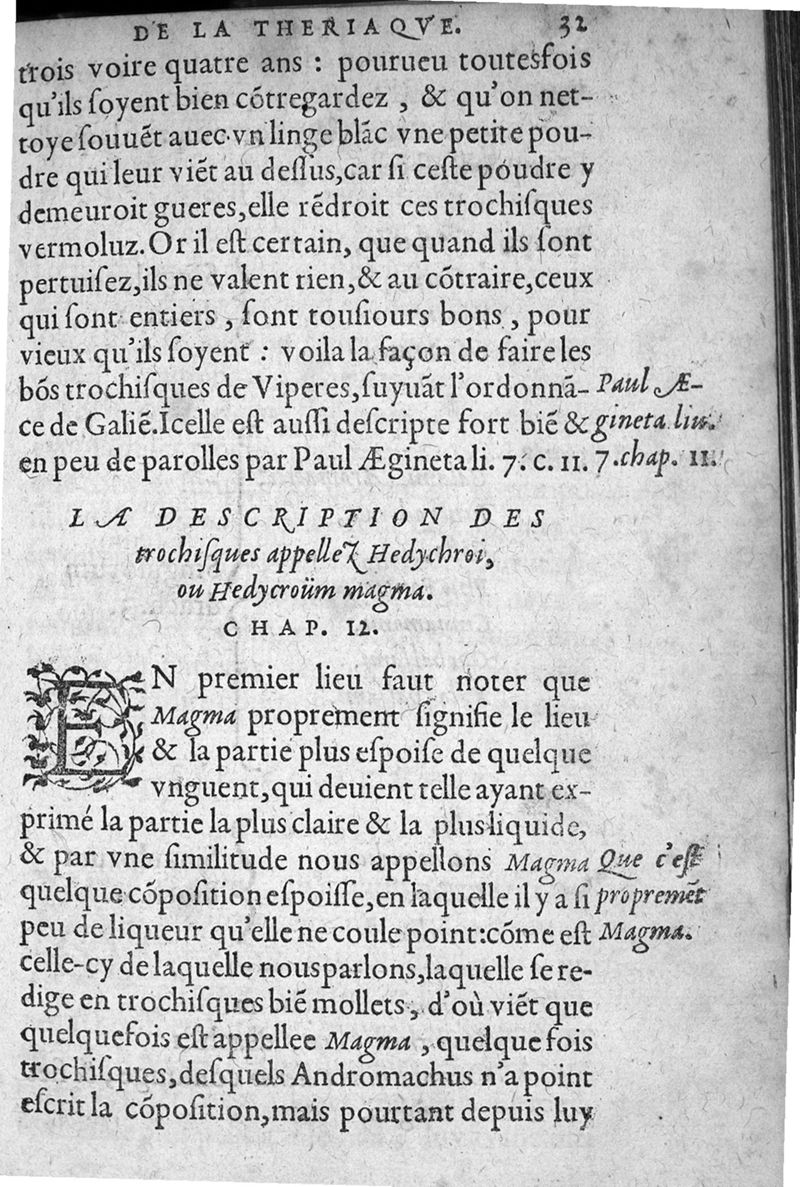 DE LA THERIAQVE. 32
trois voire quatre ans : pourueu toutesfois
qu'ils ſoyent bien cõtregardez , & qu'on net-
toye ſouuẽt auec vn linge blãc vne petite pou-
dre qui leur viẽt au deſſus,car ſi ceſte poudre y
demeuroit gueres,elle rẽdroit ces trochiſques
vermoluz.Or il eſt certain, que quand ils ſont
pertuiſez,ils ne valent rien,& au cõtraire,ceux
qui ſont entiers , ſont touſiours bons , pour
vieux qu'ils ſoyent : voila la façon de faire les
bõs trochiſques de Viperes,ſuyuãt l'ordonnã-
ce de Galiẽ.Icelle eſt auſſi deſcripte fort biẽ &
en peu de parolles par Paul Ægineta li. 7. c. 11.
Paul Æ-
gineta liu.
7.chap. 11.
LA DESCRIPTION DES
trochiſques appellez Hedychroi,
ou Hedycroüm magma.
CHAP. 12.
EN premier lieu faut noter que
Magma proprement ſignifie le lieu
& la partie plus eſpoiſe de quelque
vnguent,qui deuient telle ayant ex-
primé la partie la plus claire & la plus liquide,
& par vne ſimilitude nous appellons Magma
quelque cõpoſition eſpoiſſe,en laquelle il y a ſi
peu de liqueur qu'elle ne coule point:cõme eſt
Que c'eſt
propremẽt
Magma.
celle-cy de laquelle nous parlons,laquelle ſe re-
dige en trochiſques biẽ mollets, d'où viẽt que
quelquefois eſt appellee Magma , quelque fois
trochiſques,deſquels Andromachus n'a point
eſcrit la cõpoſition,mais pourtant depuis luy